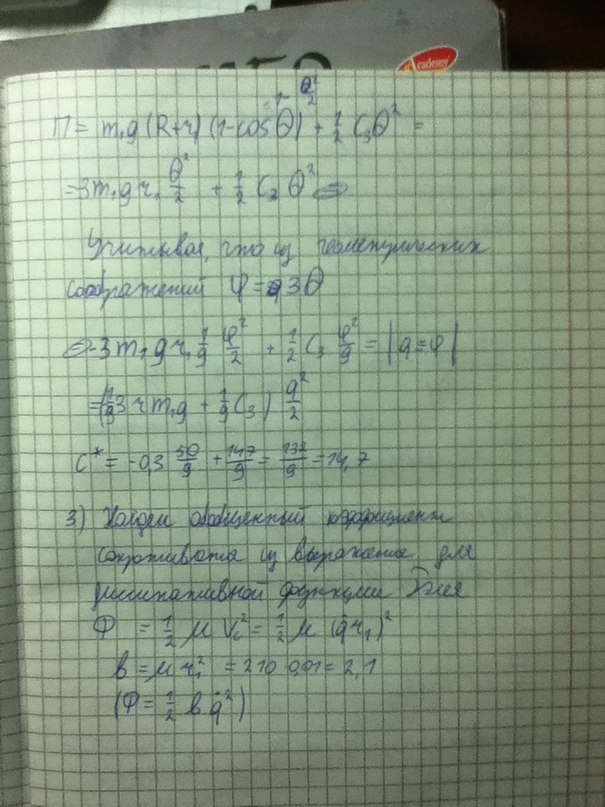 Academy
П = m₁g (R+r) (1-cosθ) + 1/2 C₃θ² =
= -3m₁g r₁ θ²/2 + 1/2 C₃ θ²
Учитывая, что из геометрических
соображений φ = 3θ
-3 m₁ g r₁ 1/9 φ²/2 + 1/2 C₃ φ²/9 = |q=φ|
3 r m₁g + 1/9 C₃) q²/2
C* = -0,3 50/9 + 147/9 = 132/9 = 14,7
3) Найдем обобщенный коэффициент
сопротивления из выражения для
диссипативной функции Рэлея
Ф = 1/2 μ Vc² = 1/2 μ (q̇ r₁)²
в = μ r₁² = 210 · 0,01 = 2,1
(Ф = 1/2 в q̇²)